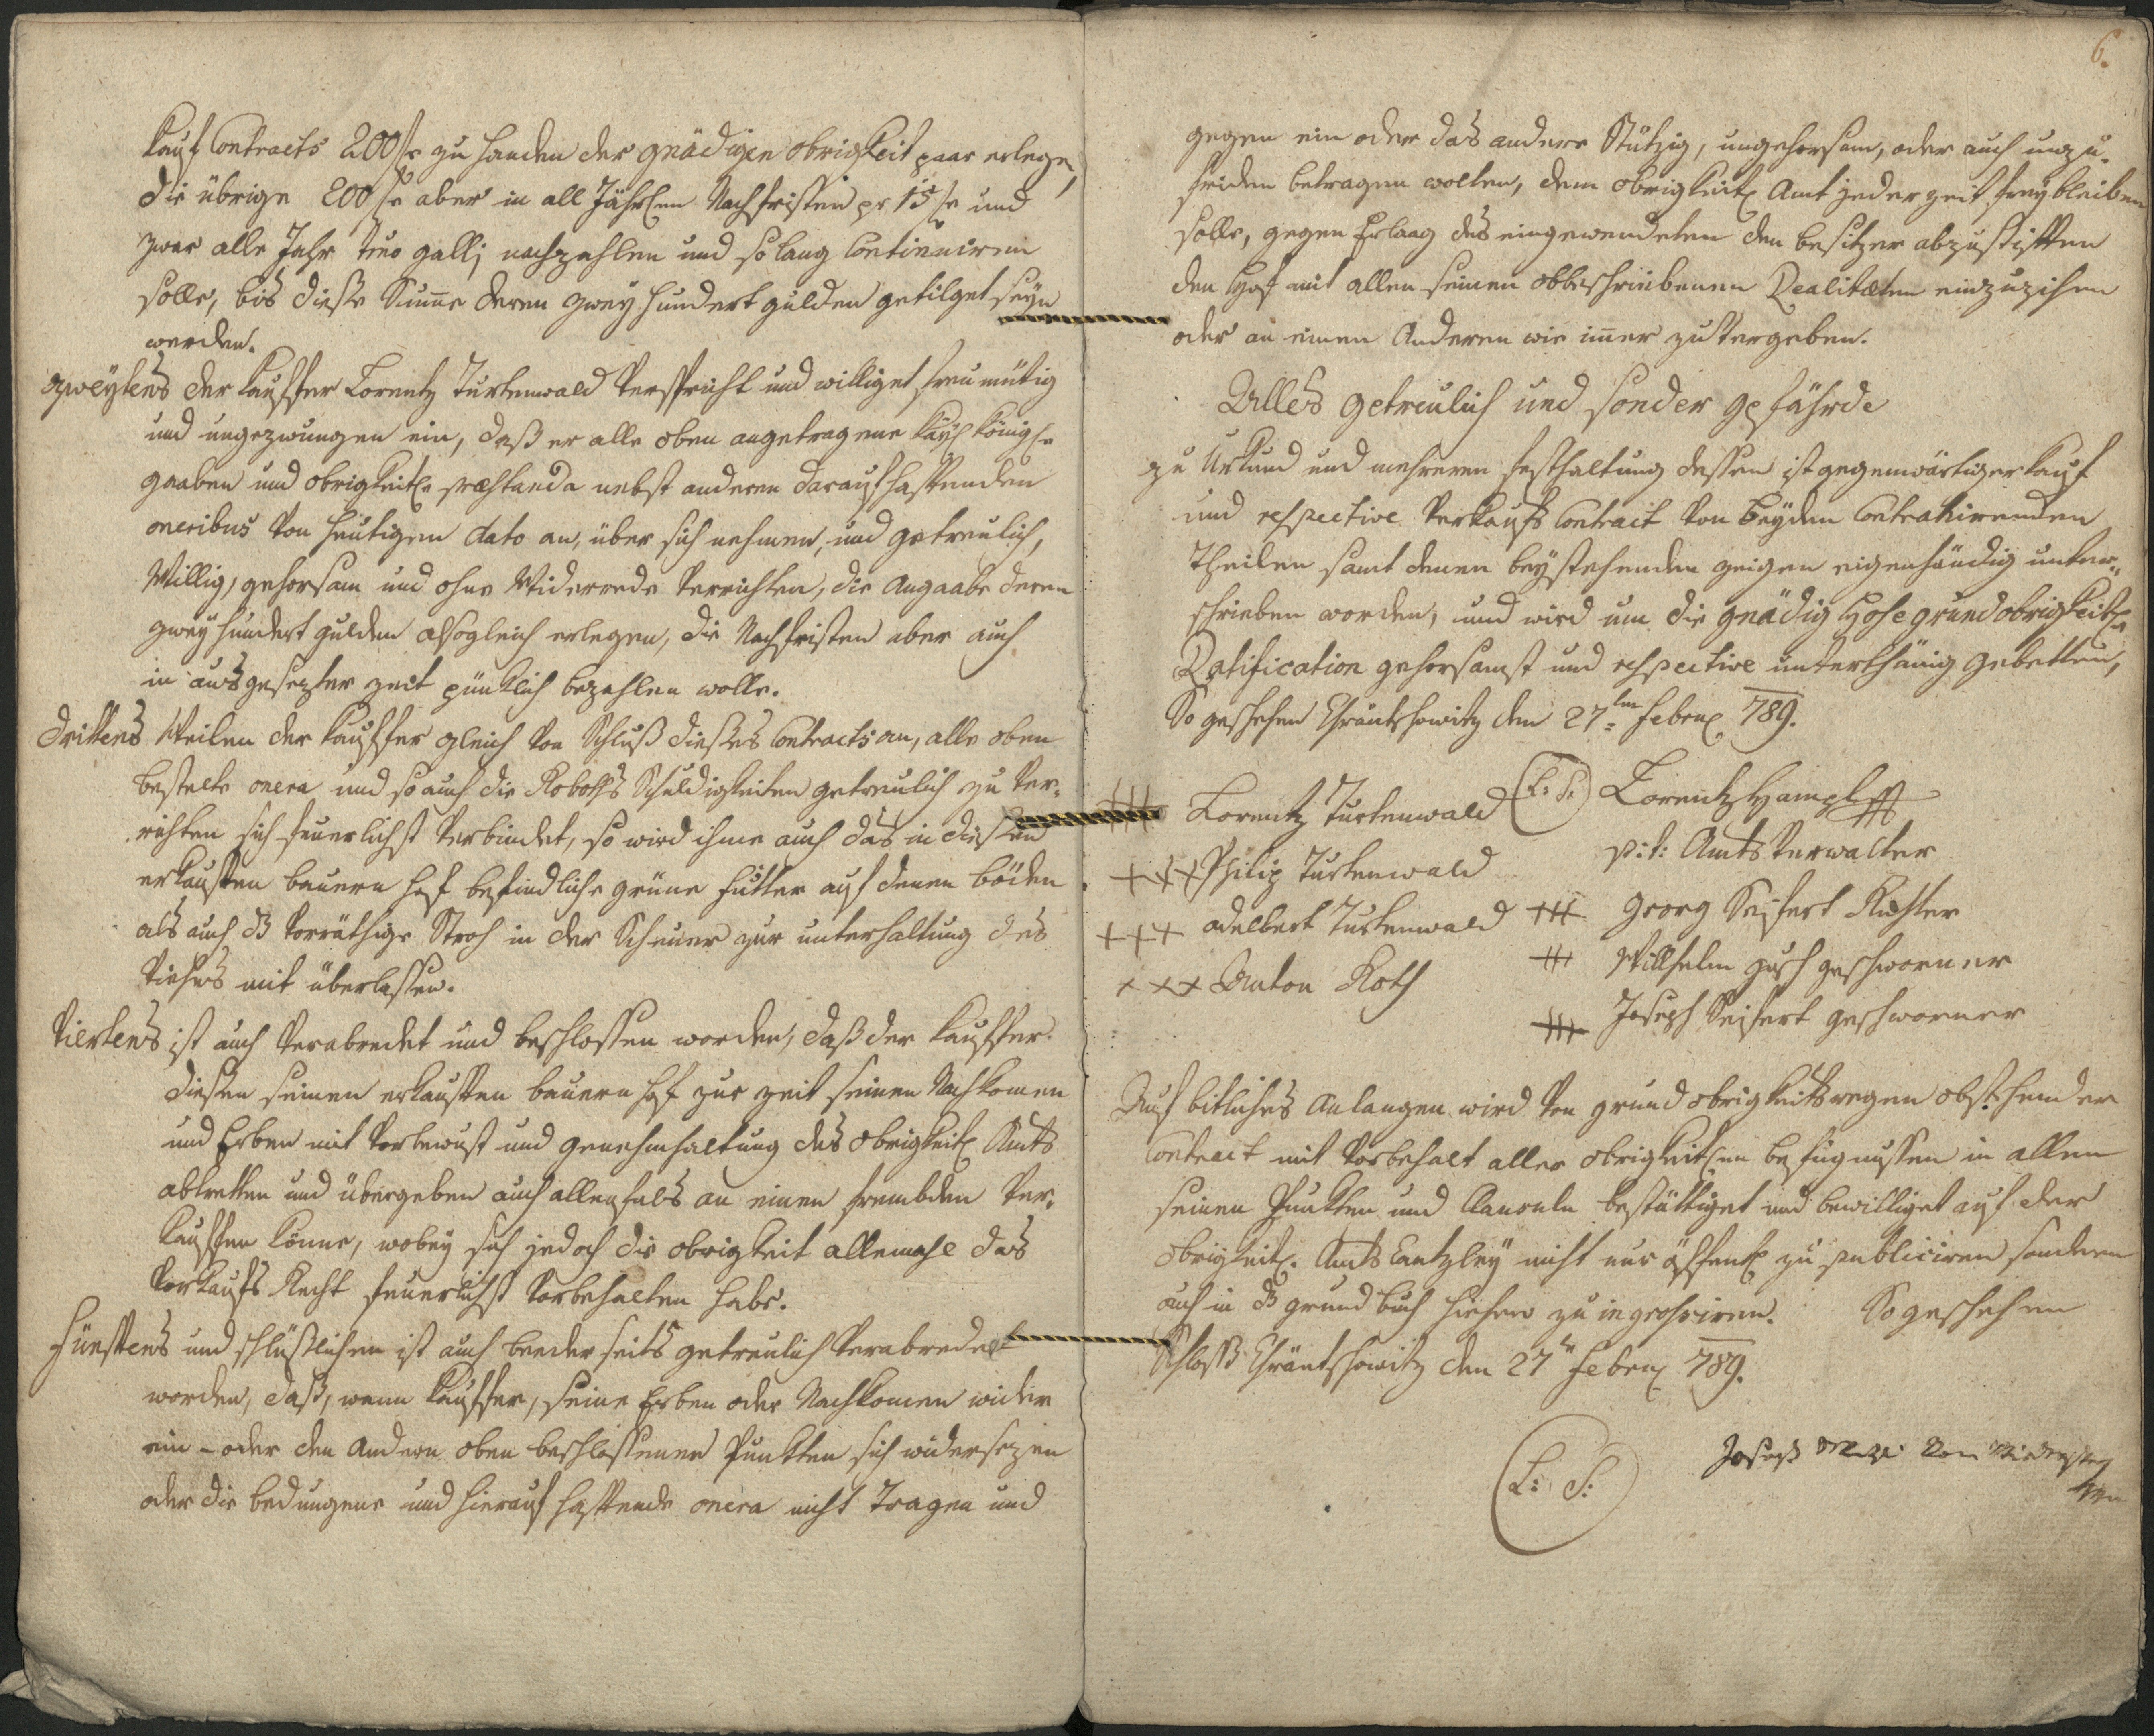 Kauf Contracts 200 f zu handen der gnädigen obrigkeit paar erlege,
die übrige 200 f aber in all Jährlen Nachfristen pr 15 f und
zwar alle Jahr Tmo galli nachzahlen und so lang Continuiren
solle, bis diese Summe deren zwey hundert gulden getilget seyn
werden.
Zweytens der Kauffer Lorentz Turkenwald verspricht und williget freumütig
und ungezwungen ein, daß er alle oben angetragene Kayl Königle
gaaben und obrigkeitle præstanda nebst anderen darauf hafftenden
oneribus von heutigen dato an, über sich nehmen, und getreulich,
Willig, gehorsam und ohne Widerrede verrichten, die Angaabe deren
zwey hundert gulden alsogleich erlegen, die Nachfristen aber auch
in ausgesezter zeit pünktlich bezahlen wolle.
Drittens Weilen der Kauffer gleich von Schluß dieses Contracts an, alle oben
bestelte onera und so auch die Roboths Schuldigkeiten getreulich zu ver-
richten sich feuerlichst verbindet, so wird ihme auch das in diesen
erkauften bauern hof befindliche grüne futter auf denen böden
als auch das vorräthige Stroh in der Scheuer zur unterhaltung des
Viehes mit überlassen.
Viertens ist auch verabredet und beschlossen worden, daß der Kauffer
diesen seinen erkauften bauern hof zur zeit seinen Nachkomen
und Erben mit vorbewust und genehmhaltung des obrigkeitl Amts
abtretten und übergeben auch allenfals an einen frembden ver-
kauffen könne, wobey sich jedoch die obrigkeit allemahl das
Vorkaufs Recht feuerlichst vorbehalten habe.
Fünftens und schlüßlichen ist auch beederseits getreulich verabredet
worden, daß, wenn Kauffer, seine Erben oder Nachkomen wider
ein- oder den Andern oben beschlossenen Punkten sich widersezen
oder die bedungene und hierauf hafftende onera nicht Tragen und
6.
gegen ein oder das andere Stützig, ungehorsam, oder auch unzu-
friden betragen wolten, dem obrigkeitl Amt jederzeit frey bleiben
solle, gegen Erlaag des eingewendeten den besitzer abzustifften
den Hof mit allen seinen obbeschriebenen Realitæten einzuzihen
oder an einen Anderen wie imer zu vergeben.
Alles getreulich und sonder gefährde
zu Urkund und mehreren festhaltung dessen ist gegenwärtiger Kauf
und respective Verkaufs Contract von beyden Contrahirenden
Theilen samt denen beystehenden zeigen eigenhändig unter-
schrieben worden, und wird um die gnädig Hohe grundobrigkeitle
Ratification gehorsamst und respective unterthänig gebetten,
So geschehen den 27ten Febru 789.
+++ Lorentz Turkenwald (L: S:) Lorentz Hampl
p:t: Amtsverwalter
+++ Philip Turkenwald
+++ Georg Seifert Richter
+++ Adelbert Turkenwald
+++ Willhelm geschworner
+++ Anton Roth
+++ Joseph Seifert geschworner
Auf bitliches Anlangen wird von grundobrigkeitswegen obstehender
Contract mit Vorbehalt aller obrigkeitlen befugnussen in allen
seinen Punkten und Clausuln bestättiget und bewilliget auf der
obrigkeitl. Amts Cantzley nicht nur öffentl zu publiciren sondern
auch in das grund buch hiehero zu ingrossiren. So geschehen
Schloss den 27ten Febru 789.
(L: S:) Joseph von